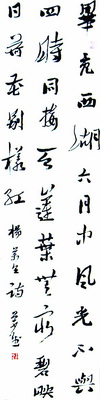 畢竟西湖六月中風光不與
四時同接天蓮葉無窮碧映
日荷花別樣紅 楊萬里詩